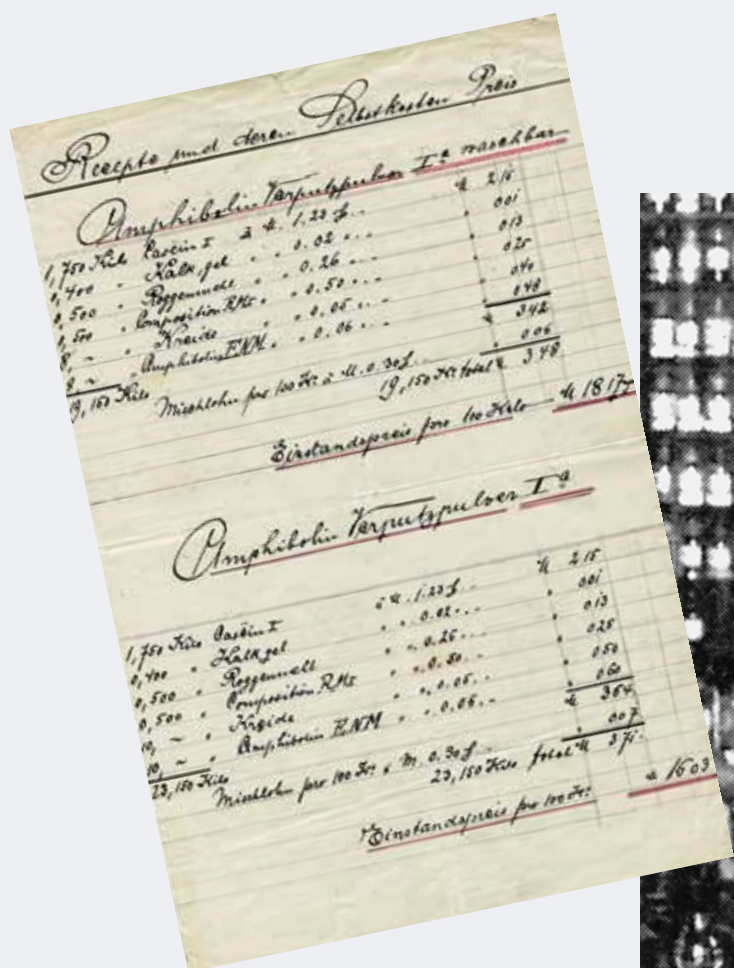 Recepte und deren Selbstkosten Preis
Amphibolin Verputzpulver Iª waschbar
1,750 Kilo Caseïn I à M. 1.23 ₰. " M 2.15
0,400 " Kalk, gel " " 0.02 " . . " 0.01
0,500 " Roggenmehl " " 0.26 " . . " 0.13
0,500 " Composition RMs " " 0.50 " . . " 0.25
8, ~ " Kreide " " 0.05 " . . " 0.40
8 ~ " Amphibolin ENM " " 0.06 " . . " 0.48
19,150 Kilo M 3.42
Mischlohn pro 100 Ko. à M. 0.30 ₰. . . " 0.06
19,150 Ko total M 3.48
Einstandspreis pro 100 Kilo M 18.17
Amphibolin Verputzpulver Iª
1,750 Kilo Caseïn I à M. 1.23 ₰. . . M 2.15
0,400 " Kalk gel " " 0.02. . . " 0.01
0,500 " Roggenmehl " " 0.26. . . " 0.13
0,500 " Composition RMs " " 0.50. . . " 0.25
10, ~ " Kreide " " 0.05. . . " 0.50
10, ~ " Amphibolin ENM " " 0.06. . . " 0.60
23,150 Kilo M 3.64
Mischlohn pro 100 Ko. à M. 0.30 ₰. . . " 0.07
23,150 Kilo total M 3.71
Einstandspreis pro 100 Ko. M 16.03